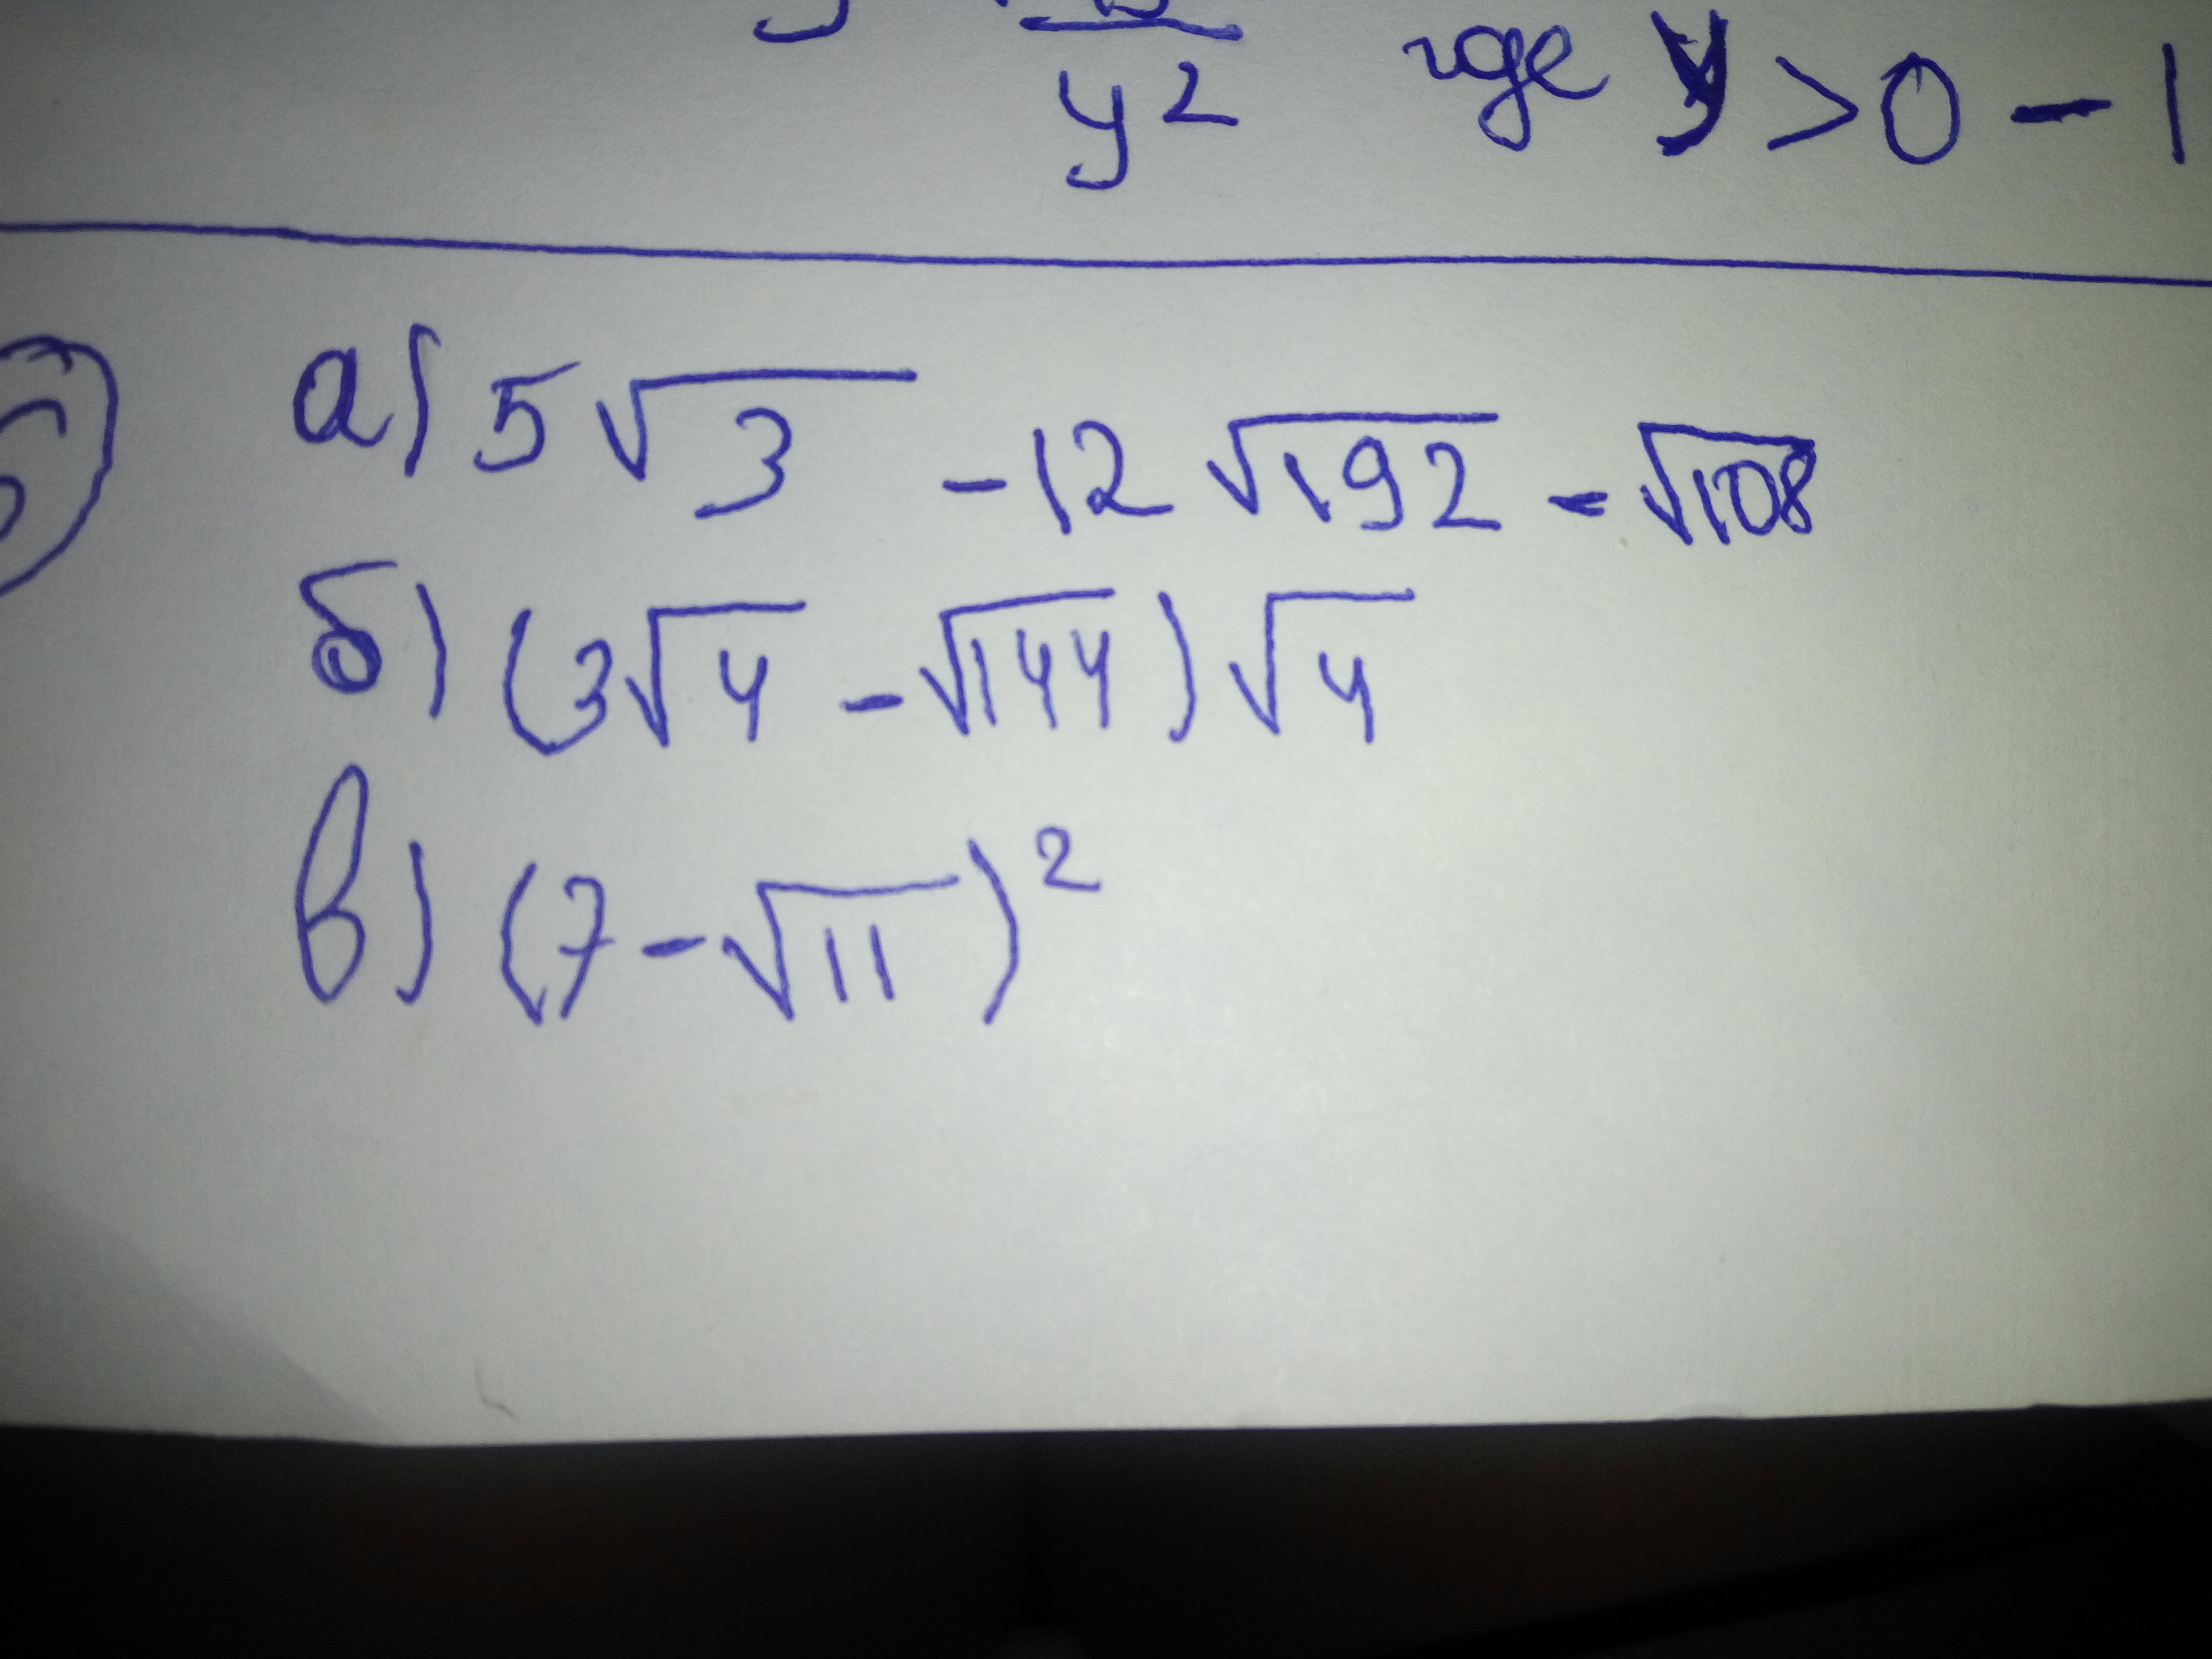 y² где y > 0 - 1
а) 5√3 - 12√192 - √108
б) (3√4 - √144) √4
в) (7 - √11)²